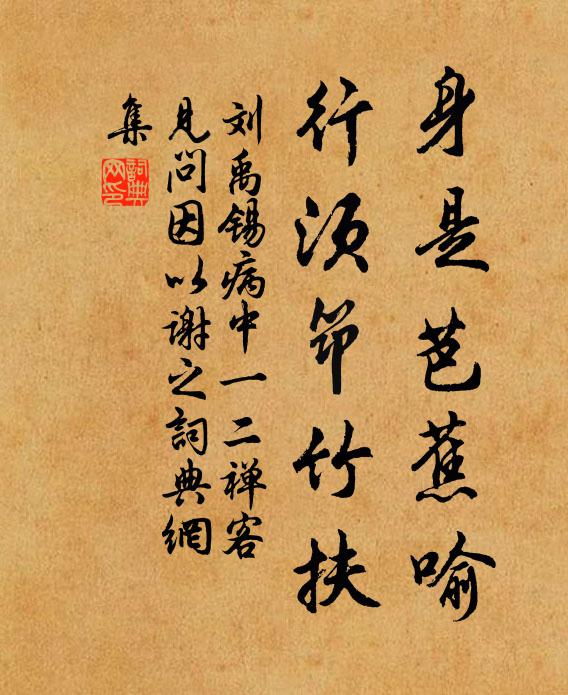 身是芭蕉喻
行须筇竹扶
刘禹锡病中一二禅客
见问因以谢之詞典網
集
詞典
网印